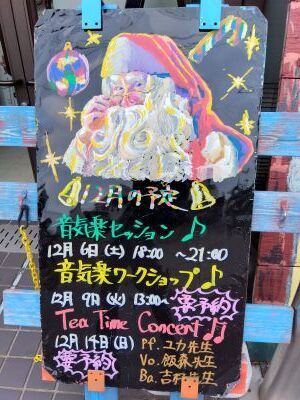 12月の予定
音気楽セッション♪
12月6日(土) 18:00 ～21:00
音気楽ワークショップ♪
12月9日(火) 13:00～ 要予約
Tea Time Concert♫
12月14日(日) PF. ユカ先生
要予約 Vo. 飯森先生
Ba. 吉村先生